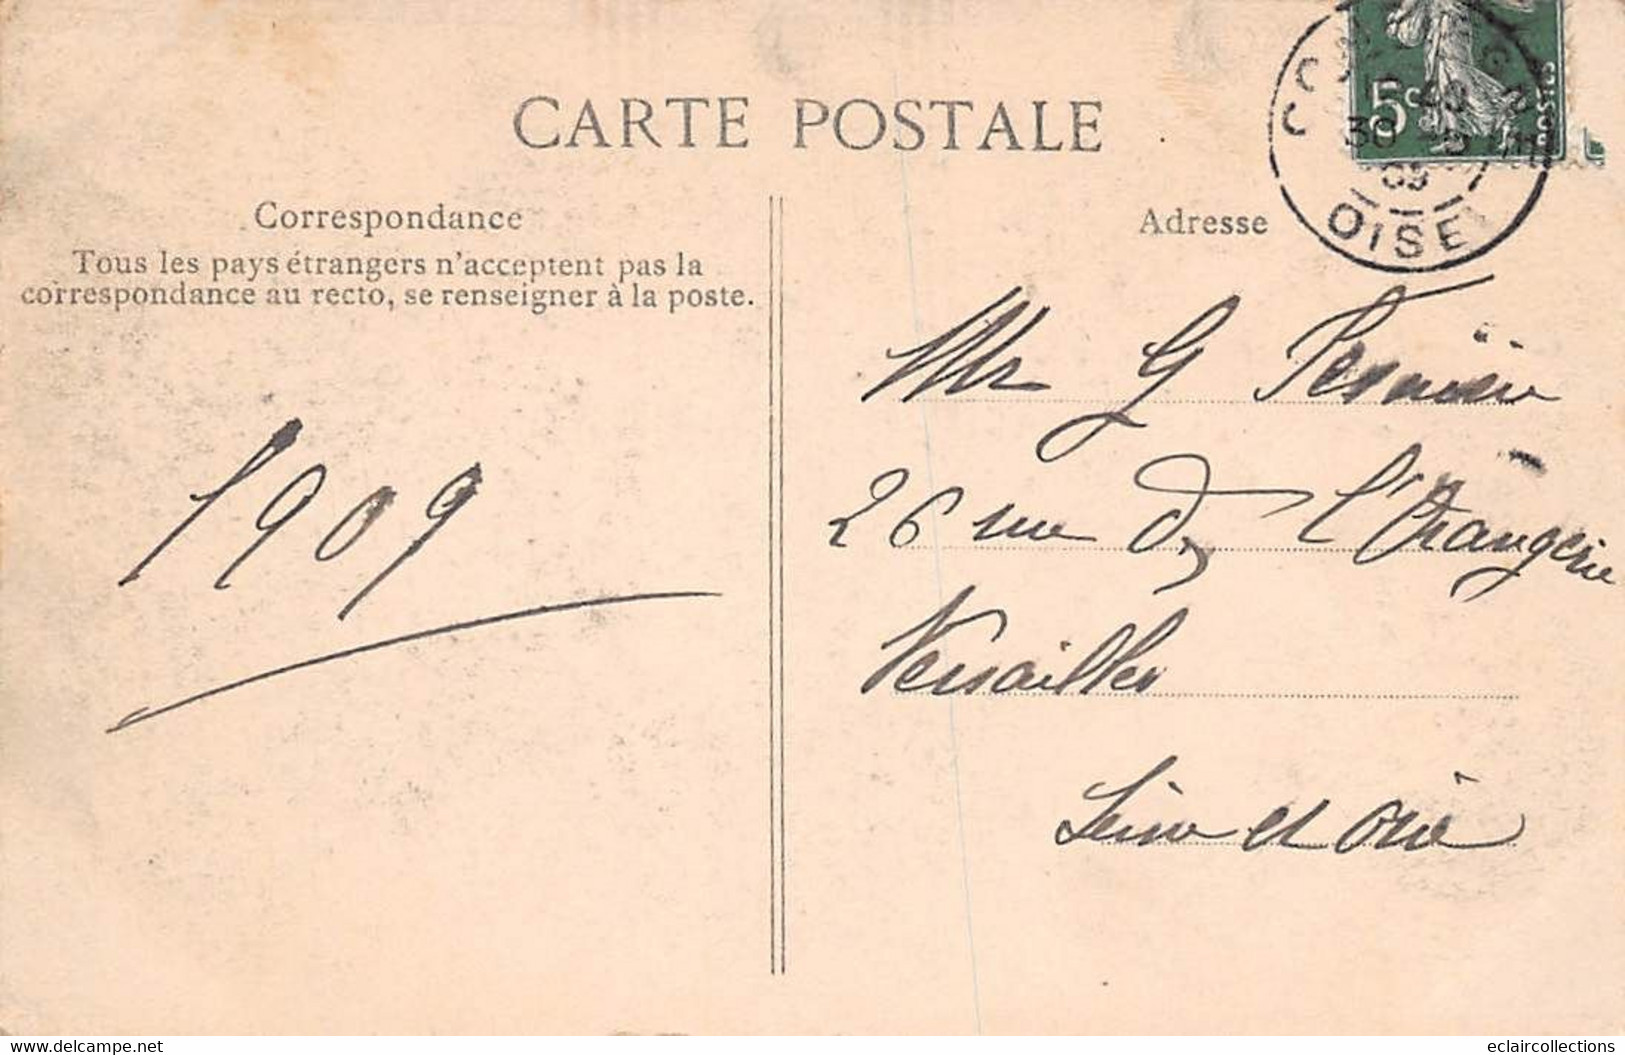 CARTE POSTALE
5c
POSTES
30
09
OISE
Correspondance
Tous les pays étrangers n'acceptent pas la
correspondance au recto, se renseigner à la poste.
1909
Adresse
Mr G
26 rue de l'Orangerie
Versailles
Seine et Oise
delcampe.net
eclaircollections